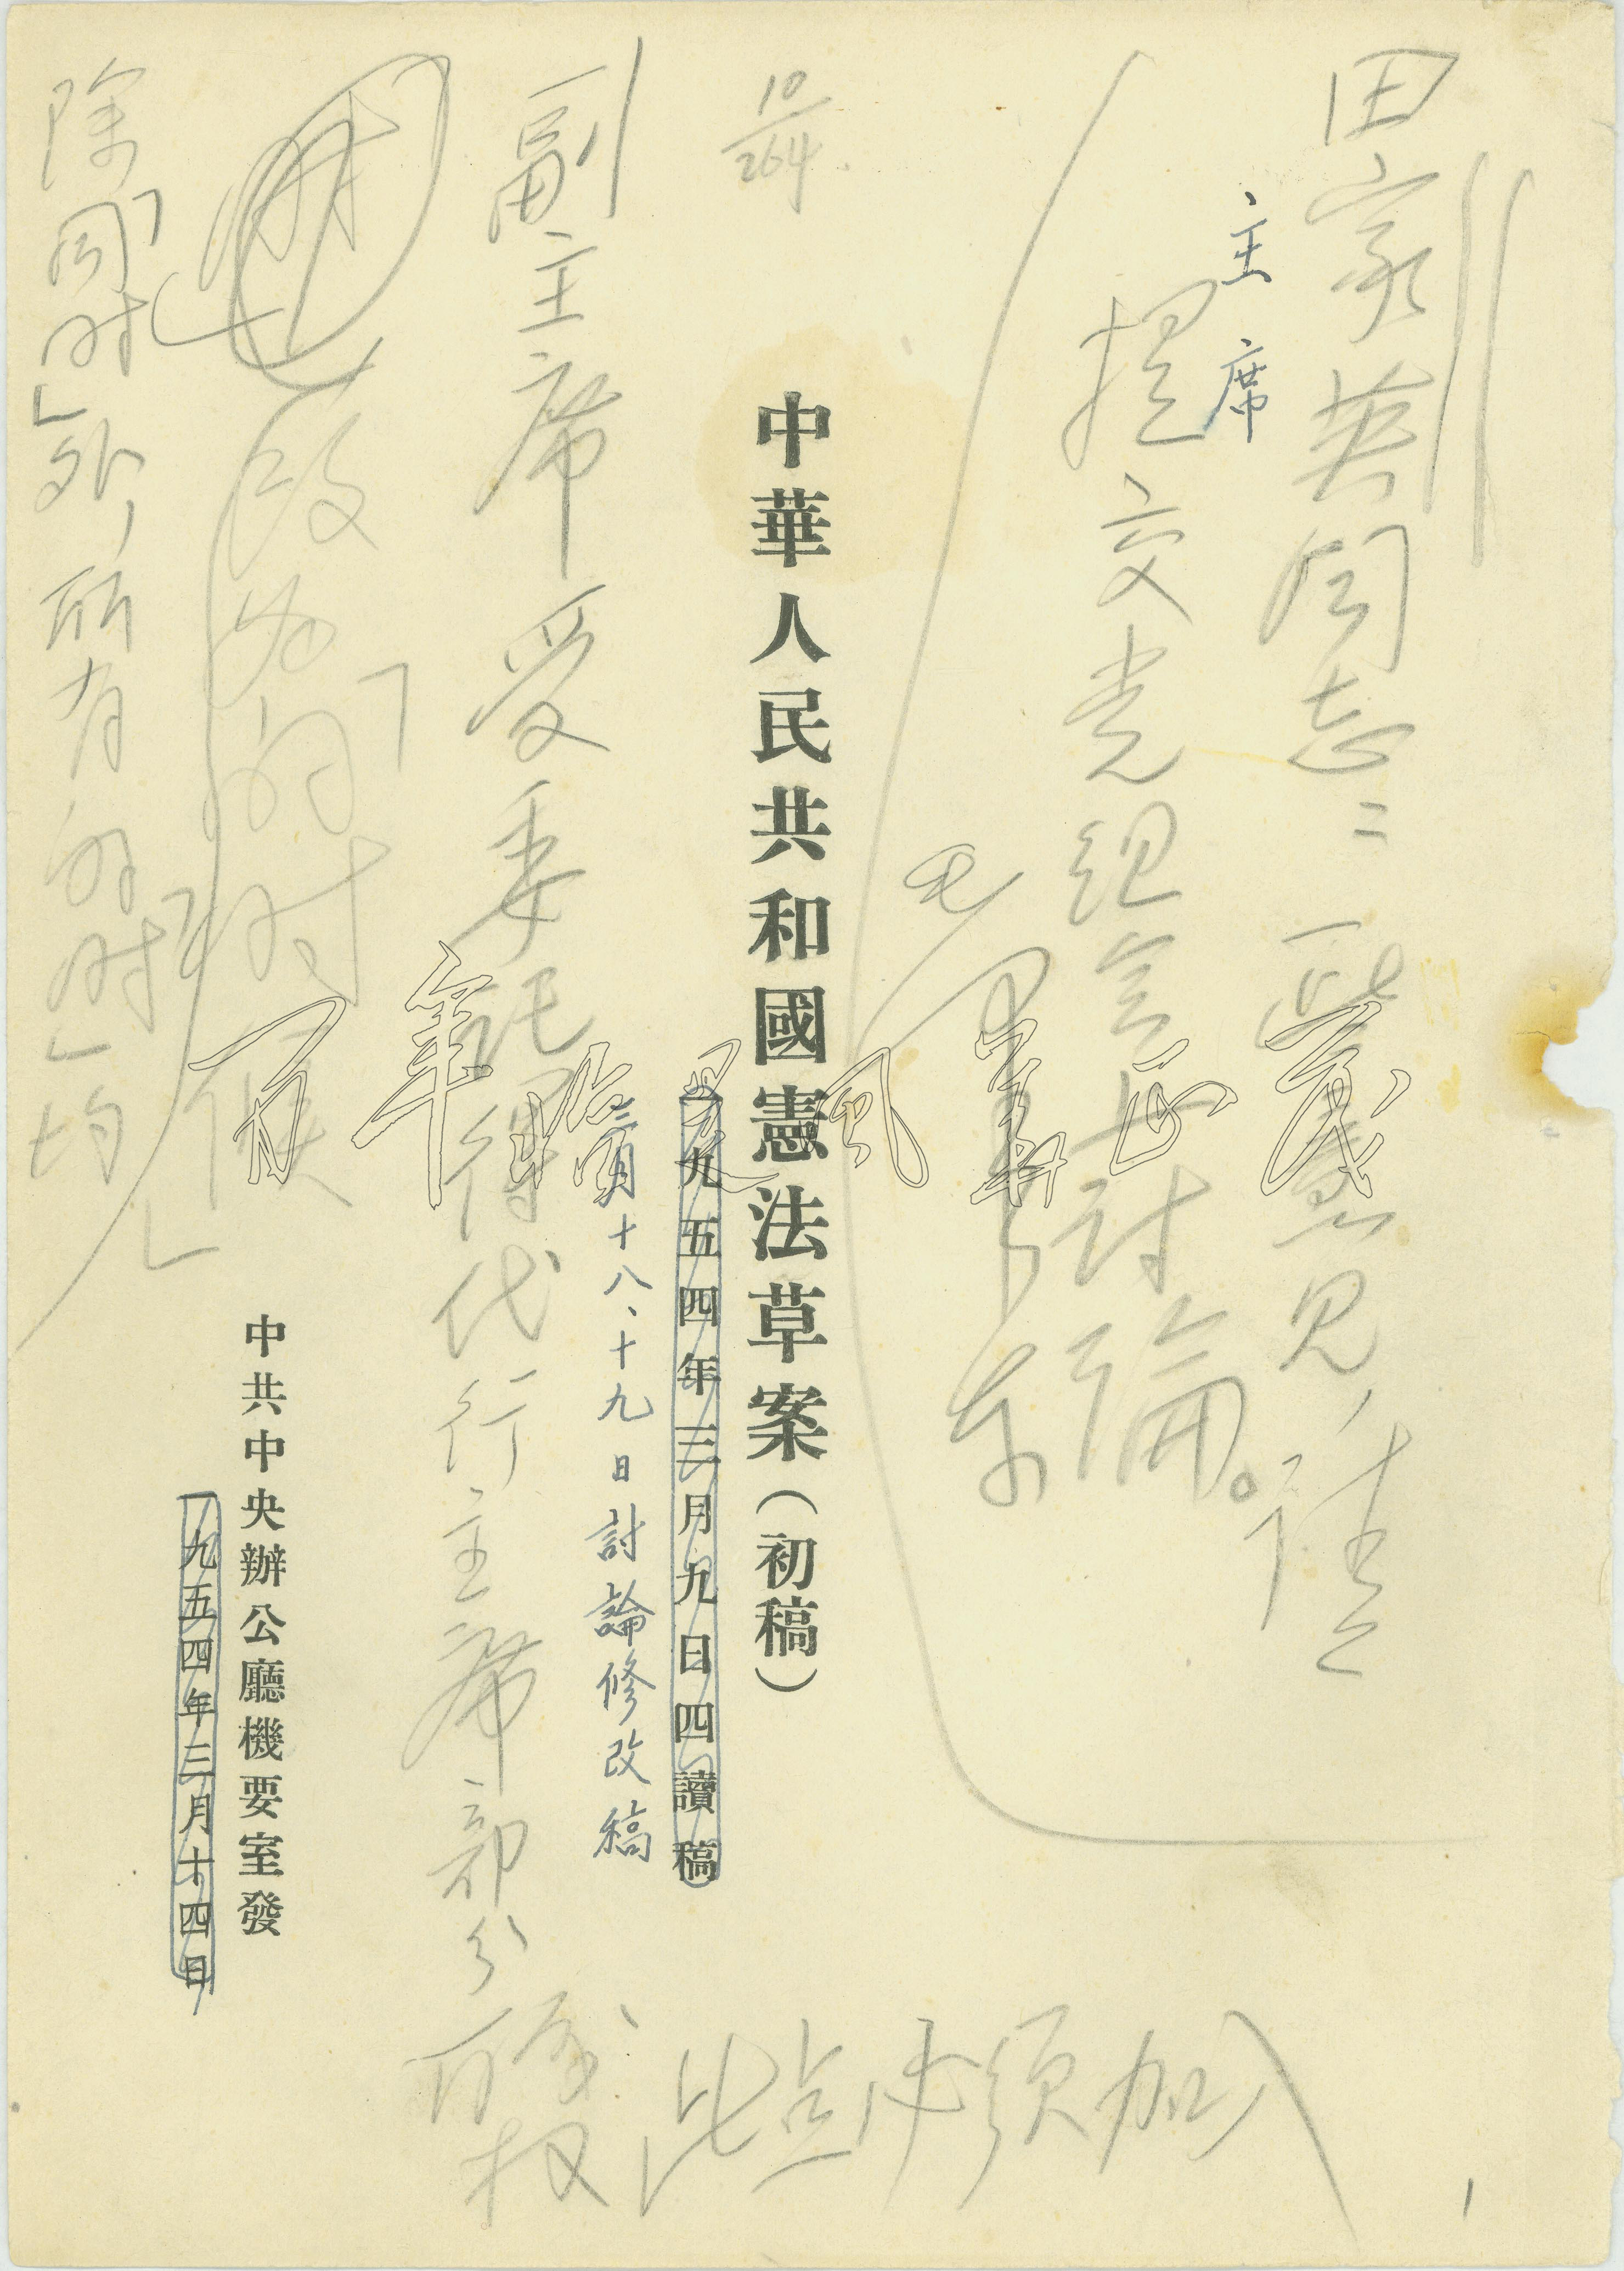 田家英同志：一些意見，請
主席
提交党組会上討論。
毛澤东
10/264
中華人民共和國憲法草案（初稿）
一九五四年三月九日四讀稿
三月十八、十九日討論修改稿
副主席受委託得代行主席部分或所有职权
此点必須加入
「时」改为「的时候」
除「同时」外，所有的「时」均
中共中央辦公廳機要室發
一九五四年三月十四日
1